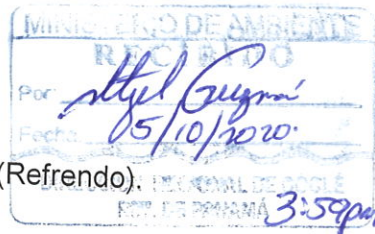 MINISTERIO DE AMBIENTE
RECIBIDO
Por: Itzel Guzmán
Fecha 05/10/2020.
(Refrendo).
DIRECCIÓN REGIONAL DE COCLÉ
REP. DE PANAMÁ 3:59pm